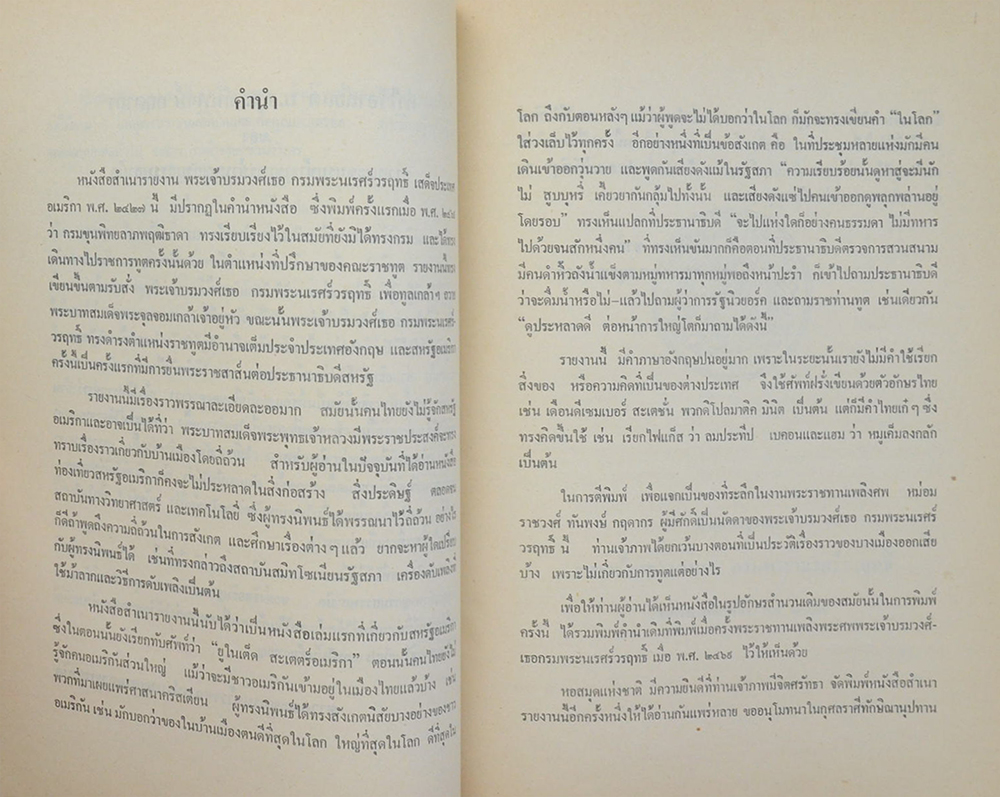 คำนำ
หนังสือสำเนารายงาน พระเจ้าบรมวงศ์เธอ กรมพระนเรศร์วรฤทธิ์ เสด็จประเทศ
อเมริกา พ.ศ. ๒๔๒๗ นี้ มีปรากฏในคำนำหนังสือ ซึ่งพิมพ์ครั้งแรกเมื่อ พ.ศ.
ว่า กรมขุนพิทยลาภพฤฒิธาดา ทรงเรียบเรียงไว้ในสมัยที่ยังมิได้ทรงกรม และได้
เดินทางไปราชการทูตครั้งนั้นด้วย ในตำแหน่งที่ปรึกษาของคณะราชทูต รายงานนี้
เขียนขึ้นตามรับสั่ง พระเจ้าบรมวงศ์เธอ กรมพระนเรศร์วรฤทธิ์ เพื่อทูลเกล้าฯ ถวาย
พระบาทสมเด็จพระจุลจอมเกล้าเจ้าอยู่หัว ขณะนั้นพระเจ้าบรมวงศ์เธอ กรมพระนเรศร์-
วรฤทธิ์ ทรงดำรงตำแหน่งราชทูตมีอำนาจเต็มประจำประเทศอังกฤษ และสหรัฐอเมริกา
ครั้งนี้เป็นครั้งแรกที่มีการยื่นพระราชสาส์นต่อประธานาธิบดีสหรัฐ
รายงานนี้มีเรื่องราวพรรณาละเอียดละออมาก สมัยนั้นคนไทยยังไม่รู้จักสหรัฐ
อเมริกาและอาจเป็นได้ที่ว่า พระบาทสมเด็จพระพุทธเจ้าหลวงมีพระราชประสงค์จะทรง
ทราบเรื่องราวเกี่ยวกับบ้านเมืองโดยถี่ถ้วน สำหรับผู้อ่านในปัจจุบันที่ได้อ่านหนังสือ
ท่องเที่ยวสหรัฐอเมริกาก็คงจะไม่ประหลาดในสิ่งก่อสร้าง สิ่งประดิษฐ์ ตลอดจน
สถาบันทางวิทยาศาสตร์ และเทคโนโลยี่ ซึ่งผู้ทรงนิพนธ์ได้พรรณนาไว้ถี่ถ้วน อย่างไร
ก็ดีถ้าพูดถึงความถี่ถ้วนในการสังเกต และศึกษาเรื่องต่างๆ แล้ว ยากจะหาผู้ใดเปรียบ
กับผู้ทรงนิพนธ์ได้ เช่นที่ทรงกล่าวถึงสถาบันสมิทโซเนียนรัฐสภา เครื่องดับเพลิงที่
ใช้ม้าลากและวิธีการดับเพลิงเป็นต้น
หนังสือสำเนารายงานนี้นับได้ว่าเป็นหนังสือเล่มแรกที่เกี่ยวกับสหรัฐอเมริกา
ซึ่งในตอนนั้นยังเรียกทับศัพท์ว่า “ยูในเต็ด สะเตตร์อเมริกา” ตอนนั้นคนไทยยังไม่
รู้จักคนอเมริกันส่วนใหญ่ แม้ว่าจะมีชาวอเมริกันเข้ามาอยู่ในเมืองไทยแล้วบ้าง เช่น
พวกที่มาเผยแพร่ศาสนาคริสเตียน ผู้ทรงนิพนธ์ได้ทรงสังเกตนิสัยบางอย่างของชาว
อเมริกัน เช่น มักบอกว่าของในบ้านเมืองตนดีที่สุดในโลก ใหญ่ที่สุดในโลก ดีที่สุดใน
โลก ถึงกับตอนหลังๆ แม้ว่าผู้พูดจะไม่ได้บอกว่าในโลก ก็มักจะทรงเขียนคำ “ในโลก”
ใส่วงเล็บไว้ทุกครั้ง อีกอย่างหนึ่งที่เป็นข้อสังเกต คือ ในที่ประชุมหลายแห่งมักมีคน
เดินเข้าออกวุ่นวาย และพูดกันเสียงดังแม้ในรัฐสภา “ความเรียบร้อยนั้นดูหาสู่จะมีนัก
ไม่ สูบบุหรี่ เคี้ยวยากันกลุ้มไปทั้งนั้น และเสียงดังแซ่ไปคนเข้าออกดูพลุกพล่านอยู่
โดยรอบ” ทรงเห็นแปลกที่ประธานาธิบดี “จะไปแห่งใดก็อย่างคนธรรมดา ไม่มีทหาร
ไปด้วยจนสักหนึ่งคน” ที่ทรงเห็นขันมากก็คือตอนที่ประธานาธิบดีตรวจการสวนสนาม
มีคนดำหิ้วถังน้ำแข็งตามหมู่ทหารมาทุกหมู่พอถึงหน้าปะรำ ก็เข้าไปถามประธานาธิบดี
ว่าจะดื่มน้ำหรือไม่–แล้วไปถามผู้ว่าการรัฐนิวยอร์ค และถามราชท่านทูต เช่นเดียวกัน
“ดูประหลาดดี ต่อหน้าการใหญ่โตก็มาถามได้ดังนี้”
รายงานนี้ มีคำภาษาอังกฤษปนอยู่มาก เพราะในระยะนั้นเรายังไม่มีคำใช้เรียก
สิ่งของ หรือความคิดที่เป็นของต่างประเทศ จึงใช้ศัพท์ฝรั่งเขียนด้วยตัวอักษรไทย
เช่น เดือนดีเซมเบอร์ สะเตชั่น พวกดิโปลมาติค มินิต เป็นต้น แต่ก็มีคำไทยเก๋ๆ ซึ่ง
ทรงคิดขึ้นใช้ เช่น เรียกไฟแก็ส ว่า ลมประทีป เบคอนและแฮม ว่า หมูเค็มลงกลัก
เป็นต้น
ในการตีพิมพ์ เพื่อแจกเป็นของที่ระลึกในงานพระราชทานเพลิงศพ หม่อม
ราชวงศ์ ทันพงษ์ กฤดากร ผู้มีศักดิ์เป็นนัดดาของพระเจ้าบรมวงศ์เธอ กรมพระนเรศร์
วรฤทธิ์ นี้ ท่านเจ้าภาพได้ยกเว้นบางตอนที่เป็นประวัติเรื่องราวของบางเมืองออกเสีย
บ้าง เพราะไม่เกี่ยวกับการทูตแต่อย่างไร
เพื่อให้ท่านผู้อ่านได้เห็นหนังสือในรูปอักษรสำนวนเดิมของสมัยนั้นในการพิมพ์
ครั้งนี้ ได้รวมพิมพ์คำนำเดิมที่พิมพ์เมื่อครั้งพระราชทานเพลิงพระศพพระเจ้าบรมวงศ์-
เธอกรมพระนเรศร์วรฤทธิ์ เมื่อ พ.ศ. ๒๔๖๙ ไว้ให้เห็นด้วย
หอสมุดแห่งชาติ มีความยินดีที่ท่านเจ้าภาพมีจิตศรัทธา จัดพิมพ์หนังสือสำเนา
รายงานนี้อีกครั้งหนึ่งให้ได้อ่านกันแพร่หลาย ขออนุโมทนาในกุศลราศีทักษิณานุปทาน